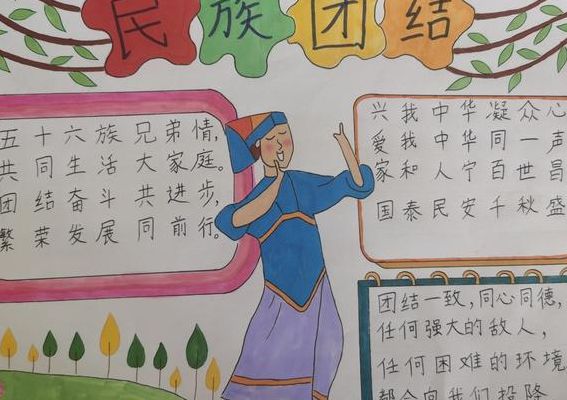 民族团结
五十六族兄弟情,
共同生活大家庭。
团结奋斗共进步,
繁荣发展同前行。
兴我中华凝众心
爱我中华同一声
家和人宁百世昌
国泰民安千秋盛
团结一致,同心同德,
任何强大的敌人,
任何困难的环境
都会向我们投降